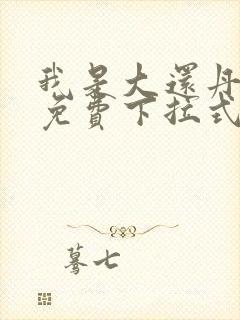 我是大還丹
免費下拉式
蓦七